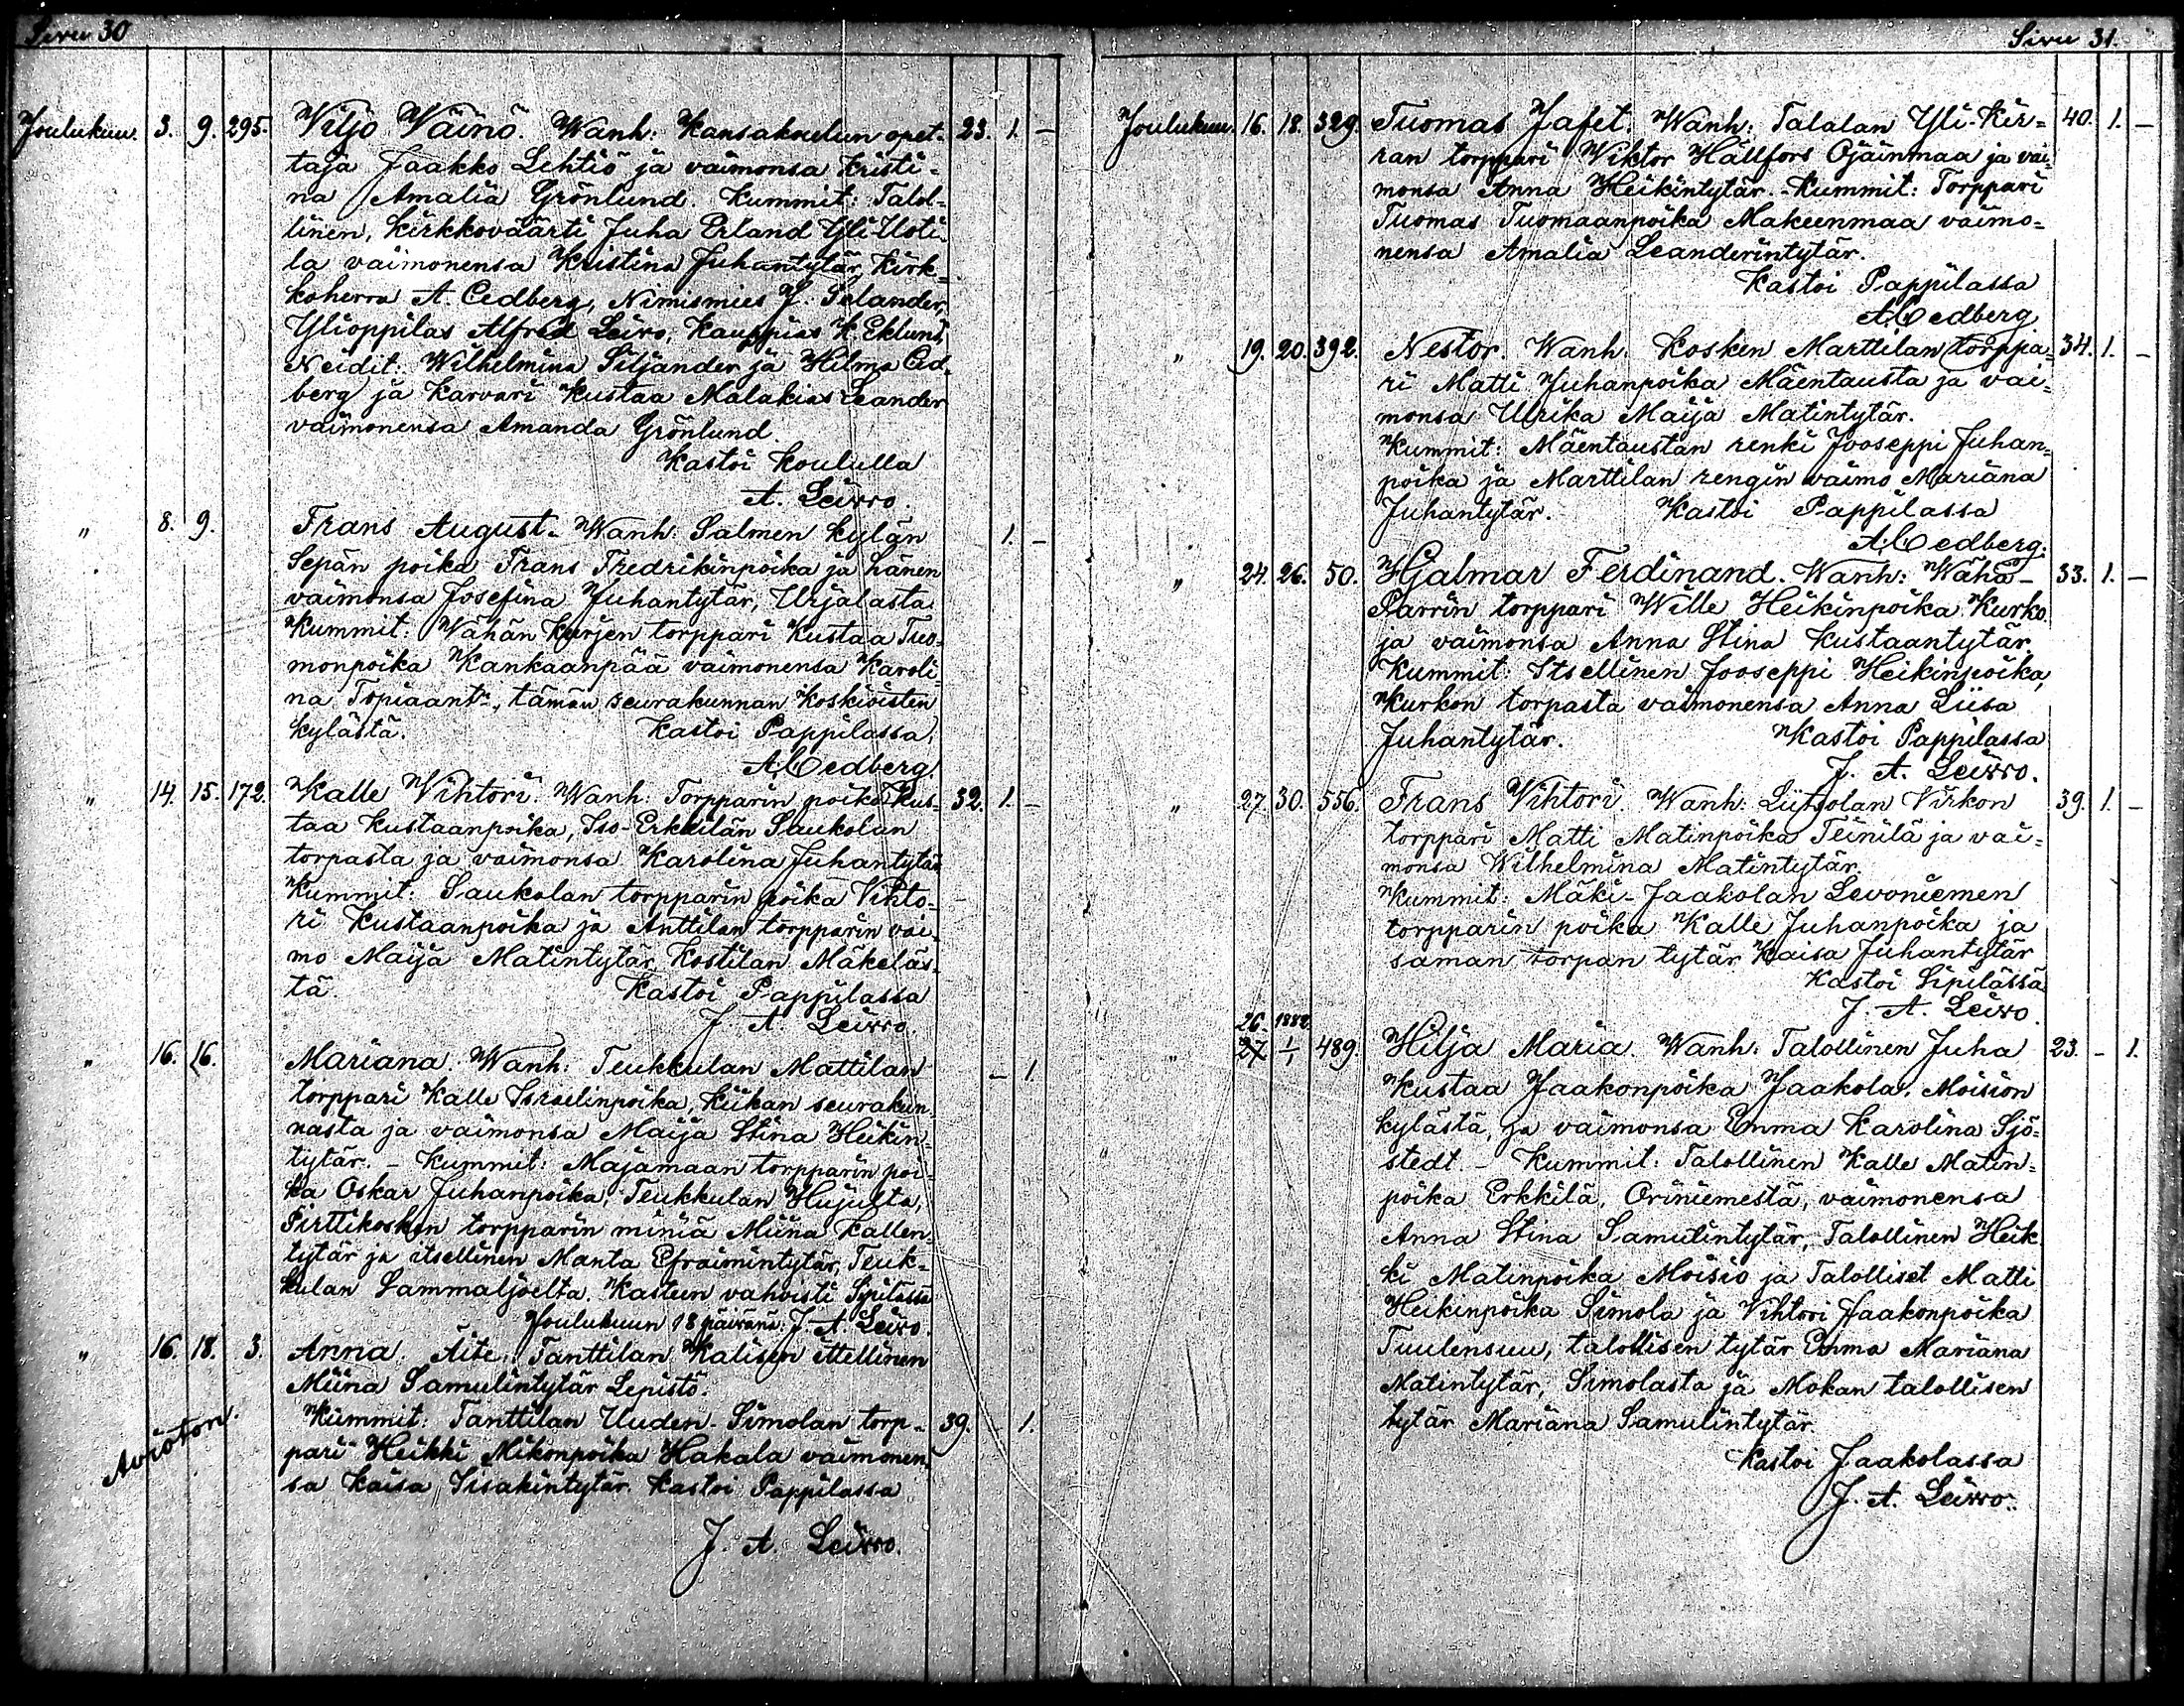 Sivu 30
Joulukuu. 3. 9. 295. Viljo Väinö. Wanh: Kansakoulun opet- 23. 1. –
taja Jaakko Lehtiö ja vaimonsa Kristi-
na Amalia Grönlund. Kummit: Talol-
linen, Kirkkoväärti Juha Erland Yli-Uoti-
la vaimonensa Kristina Juhantytär, Kirk-
koherra A. Cedberg, Nimismies J. Selander,
Ylioppilas Alfred Leivo, Kauppias K. Eklund,
Neidit: Wilhelmina Siljander ja Hilma Ced-
berg ja Karvari Kustaa Malakias Leander
vaimonensa Amanda Grönlund.
Kastoi koululla
A. Leivo.
" 8. 9. Frans August. Wanh: Salmen kylän 1. –
Sepän poika Frans Fredrikinpoika ja hänen
vaimonsa Josefina Juhantytär, Urjalasta
Kummit: Vähän Kurjen torppari Kustaa Tuo-
monpoika Kankaanpää vaimonensa Karoli-
na Topiaant., tämän seurakunnan Koskioisten
kylästä. Kastoi Pappilassa,
A. Cedberg.
" 14. 15. 172. Kalle Vihtori. Wanh: Torpparin poika Kus- 32. 1. –
taa Kustaanpoika, Iso-Erkkilän Saukolan
torpasta ja vaimonsa Karolina Juhantytär
Kummit: Saukolan torpparin poika Vihto-
ri Kustaanpoika ja Anttilan torpparin vai-
mo Maija Matintytär Kostilan Mäkeläs-
tä. Kastoi Pappilassa
J. A. Leivo.
" 16. 16. Mariana. Wanh: Teukkulan Mattilan – 1.
torppari Kalle Israelinpoika, Kiikan seurakun-
nasta ja vaimonsa Maija Stina Heikin-
tytär. – Kummit: Majamaan torpparin poi-
ka Oskar Juhanpoika, Teukkulan Hujulta,
Pirttikosken torpparin miniä Miina Kallen-
tytär ja itsellinen Manta Efraimintytär, Teuk-
kulan Sammaljoelta. Kasteen vahvisti Sipilässä
Joulukuun 18 päivänä. J. A. Leivo.
" 16. 18. 3. Anna. Äite: Tanttilan Kalisen ittellinen
Miina Samulintytär Lepistö.
Avioton. Kummit: Tanttilan Uuden-Simolan torp- 39. 1.
pari Heikki Mikonpoika Hakala vaimonen-
sa Kaisa Iisakintytär. Kastoi Pappilassa
J. A. Leivo.
Sivu 31.
Joulukuu. 16. 18. 329. Tuomas Jafet. Wanh: Talalan Yli-Kir- 40. 1. –
ran torppari Wiktor Hällfors Ojainmaa ja vai-
monsa Anna Heikintytär. – Kummit: Torppari
Tuomas Tuomaanpoika Makeenmaa vaimo-
nensa Amalia Leanderintytär.
Kastoi Pappilassa
A. Cedberg
" 19. 20. 392. Nestor. Wanh: Kosken Marttilan torppa- 34. 1. –
ri Matti Juhanpoika Mäentausta ja vai-
monsa Ulrika Maija Matintytär.
Kummit: Mäentaustan renki Jooseppi Juhan-
poika ja Marttilan rengin vaimo Mariana
Juhantytär. Kastoi Pappilassa
A. Cedberg.
" 24. 26. 50. Hjalmar Ferdinand. Wanh: Wähä- 33. 1. –
Parrin torppari Wille Heikinpoika Kurko
ja vaimonsa Anna Stina Kustaantytär.
Kummit: Itsellinen Jooseppi Heikinpoika,
Kurkon torpasta vaimonensa Anna Liisa
Juhantytär. Kastoi Pappilassa
J. A. Leivo.
" 27. 30. 556. Frans Vihtori. Wanh: Liitsolan Virkon 39. 1. –
torppari Matti Matinpoika Teinilä ja vai-
monsa Wilhelmina Matintytär.
Kummit: Mäki-Jaakolan Levoniemen
torpparin poika Kalle Juhanpoika ja
saman torpan tytär Kaisa Juhantytär
Kastoi Sipilässä
J. A. Leivo.
26. 1882
" 27 1/1 489. Hilja Maria. Wanh: Talollinen Juha 23. – 1.
Kustaa Jaakonpoika Jaakola, Moision
kylästä, ja vaimonsa Emma Karolina Sjö-
stedt. – Kummit: Talollinen Kalle Matin-
poika Erkkilä, Oriniemestä, vaimonensa
Anna Stina Samulintytär, Talollinen Heik-
ki Matinpoika Moisio ja Talolliset Matti
Heikinpoika Simola ja Vihtori Jaakonpoika
Tuulensuu, talollisen tytär Emma Mariana
Matintytär, Simolasta ja Mokan talollisen
tytär Mariana Samulintytär.
Kastoi Jaakolassa
J. A. Leivo.